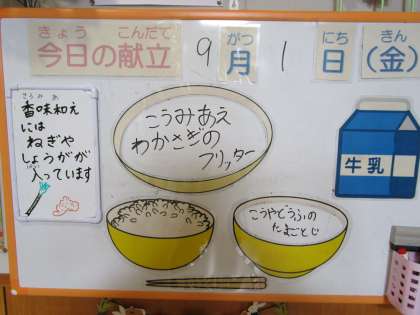 きょう こんだて
今日の献立
9
がつ
月
1
にち
日
きん
(金)
こうみあえ
香味和え
には
ねぎや
しょうがが
入っています
こうみあえ
わかさぎの
フリッター
牛乳
こうやどうふの
たまごとじ